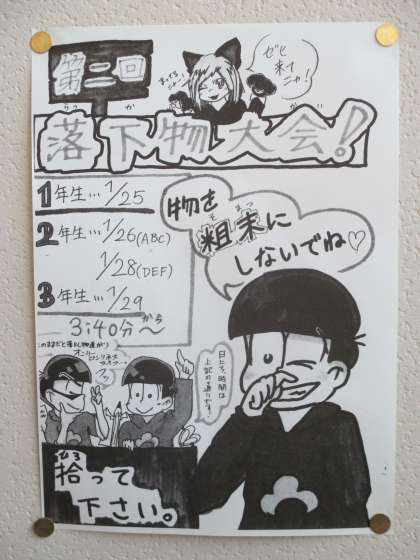 第二回
ぜひ
来て
ニャ!
らっか
落下物大会!
1年生…1/25
2年生…1/26(ABC)
1/28(DEF)
3年生…1/29
3:40分から〜
物を
そまつ
粗末に
しないでね♡
日にち、時間は
上記の通りです。
ひろ
拾って
下さい。